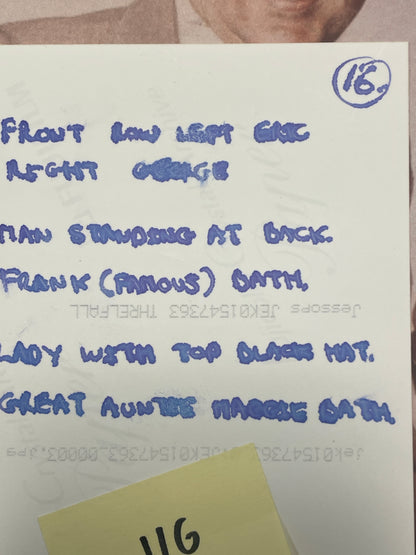 16.
FRONT ROW LEFT ERIC
RIGHT GEORGE
MAN STANDING AT BACK.
FRANK (FAMOUS) BATH.
Jessops JEK01547363 THRELFALL
LADY WITH TOP BLACK HAT.
GREAT AUNTIE MAGGIE BATH.
Jek01547363_01JEK01547363_00003.jpg
116